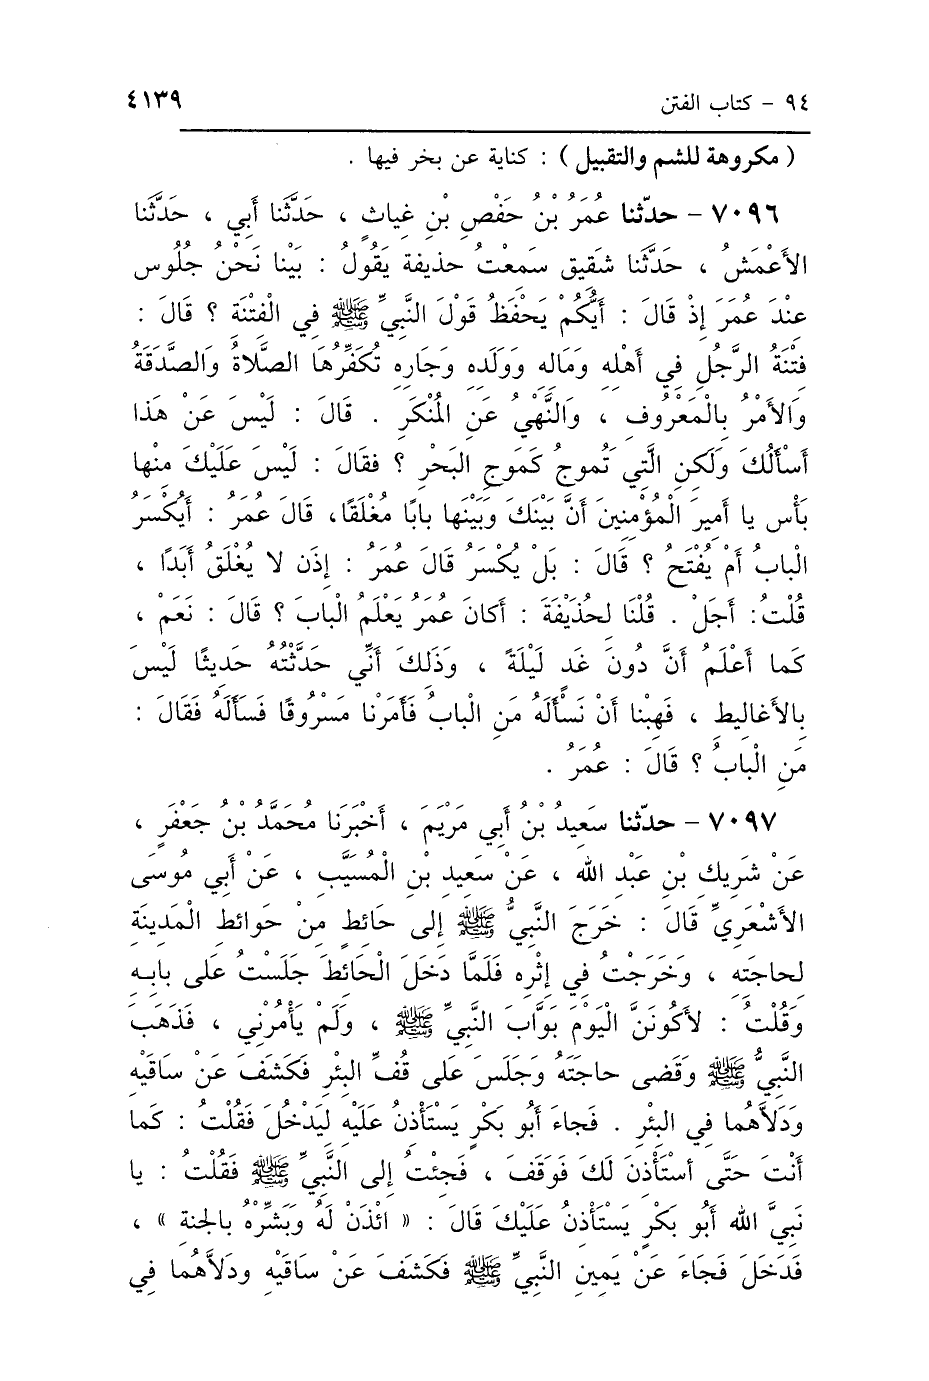 ٩٤ - كتاب الفتن ٤١٣٩
( مكروهة للشم والتقبيل ) : كناية عن بخر فيها .
٧٠٩٦ - حدّثنا عُمَرُ بْنُ حَفْصِ بْنِ غِياثٍ ، حَدَّثَنا أَبي ، حَدَّثَنا
الأَعْمَشُ ، حَدَّثَنا شَقيق سَمعتُ حذيفة يَقُولُ : بَيْنا نَحْنُ جُلُوس
عِنْدَ عُمَرَ إذْ قالَ : أَيُّكُمْ يَحْفَظُ قَوْلَ النَّبِيِّ ﷺ فِي الْفِتْنَةِ ؟ قَالَ :
فِتْنَةُ الرَّجُلِ فِي أهْلِهِ وَمَالِهِ وَوَلَدِهِ وَجَارِهِ تُكَفِّرُهَا الصَّلاةُ وَالصَّدَقَةُ
وَالأَمْرُ بِالْمَعْرُوفِ ، وَالنَّهْيُ عَنِ المُنْكَرِ . قَالَ : لَيْسَ عَنْ هَذا
أَسْأَلُكَ وَلَكنِ الَّتِي تَمُوجُ كَمَوجِ البَحْرِ ؟ فقَالَ : لَيْسَ عَلَيْكَ مِنْها
بَأْس يا أميرَ الْمُؤْمِنِينَ أنَّ بَيْنَكَ وَبَيْنَها بابًا مُغْلَقًا، قَالَ عُمَرُ : أَيُكْسَرُ
الْبابُ أمْ يُفْتَحُ ؟ قَالَ : بَلْ يُكْسَرُ قَالَ عُمَرُ : إذَن لا يُغْلَقُ أبَدًا ،
قُلْتُ: أجَلْ . قُلْنَا لحُذَيْفَةَ : أكانَ عُمَرُ يَعْلَمُ الْبابَ ؟ قَالَ : نَعَمْ ،
كَما أعْلَمُ أنَّ دُونَ غَدٍ لَيْلَةً ، وَذَلِكَ أنِّي حَدَّثْتُهُ حَديثًا لَيْسَ
بِالأَغالِيطِ ، فَهِبْنا أنْ نَسْأَلَهُ مَنِ الْبابُ فَأَمَرْنا مَسْرُوقًا فَسَأَلَهُ فَقَالَ :
مَنِ الْبابُ ؟ قَالَ : عُمَرُ .
٧٠٩٧ - حدّثنا سَعِيدُ بْنُ أبي مَرْيَمَ ، أَخْبَرَنا مُحَمَّدُ بْنُ جَعْفَرٍ ،
عَنْ شَرِيكِ بْنِ عَبْدِ اللهِ ، عَنْ سَعِيدِ بْنِ الْمُسَيَّبِ ، عَنْ أَبِي مُوسَى
الأَشْعَرِيِّ قَالَ : خَرَجَ النَّبِيُّ ﷺ إلى حَائِطٍ مِنْ حَوائِطِ الْمَدِينَةِ
لِحاجَتِهِ ، وَخَرَجْتُ فِي إثْرِهِ فَلَمَّا دَخَلَ الْحَائِطَ جَلَسْتُ عَلَى بابِهِ
وَقُلْتُ : لأَكُونَنَّ الْيَوْمَ بَوَّابَ النَّبِيِّ ﷺ ، وَلَمْ يَأْمُرْنِي ، فَذَهَبَ
النَّبِيُّ ﷺ وَقَضى حاجَتَهُ وَجَلَسَ عَلى قُفِّ البِئْرِ فَكَشَفَ عَنْ سَاقَيْهِ
وَدَلاَّهُما فِي البِئْرِ . فَجاءَ أبُو بَكْرٍ يَسْتَأْذِنُ عَلَيْهِ لِيَدْخُلَ فَقُلْتُ : كَما
أنْتَ حَتَّى أسْتَأْذِنَ لَكَ فَوَقَفَ ، فَجِئْتُ إلى النَّبِيِّ ﷺ فَقُلْتُ : يا
نَبِيَّ اللهِ أبُو بَكْرٍ يَسْتَأْذِنُ عَلَيْكَ قَالَ : « ائْذَنْ لَهُ وَبَشِّرْهُ بالجنة » ،
فَدَخَلَ فَجَاءَ عَنْ يَمِينِ النَّبِيِّ ﷺ فَكَشَفَ عَنْ سَاقَيْهِ ودَلاَّهُما فِي